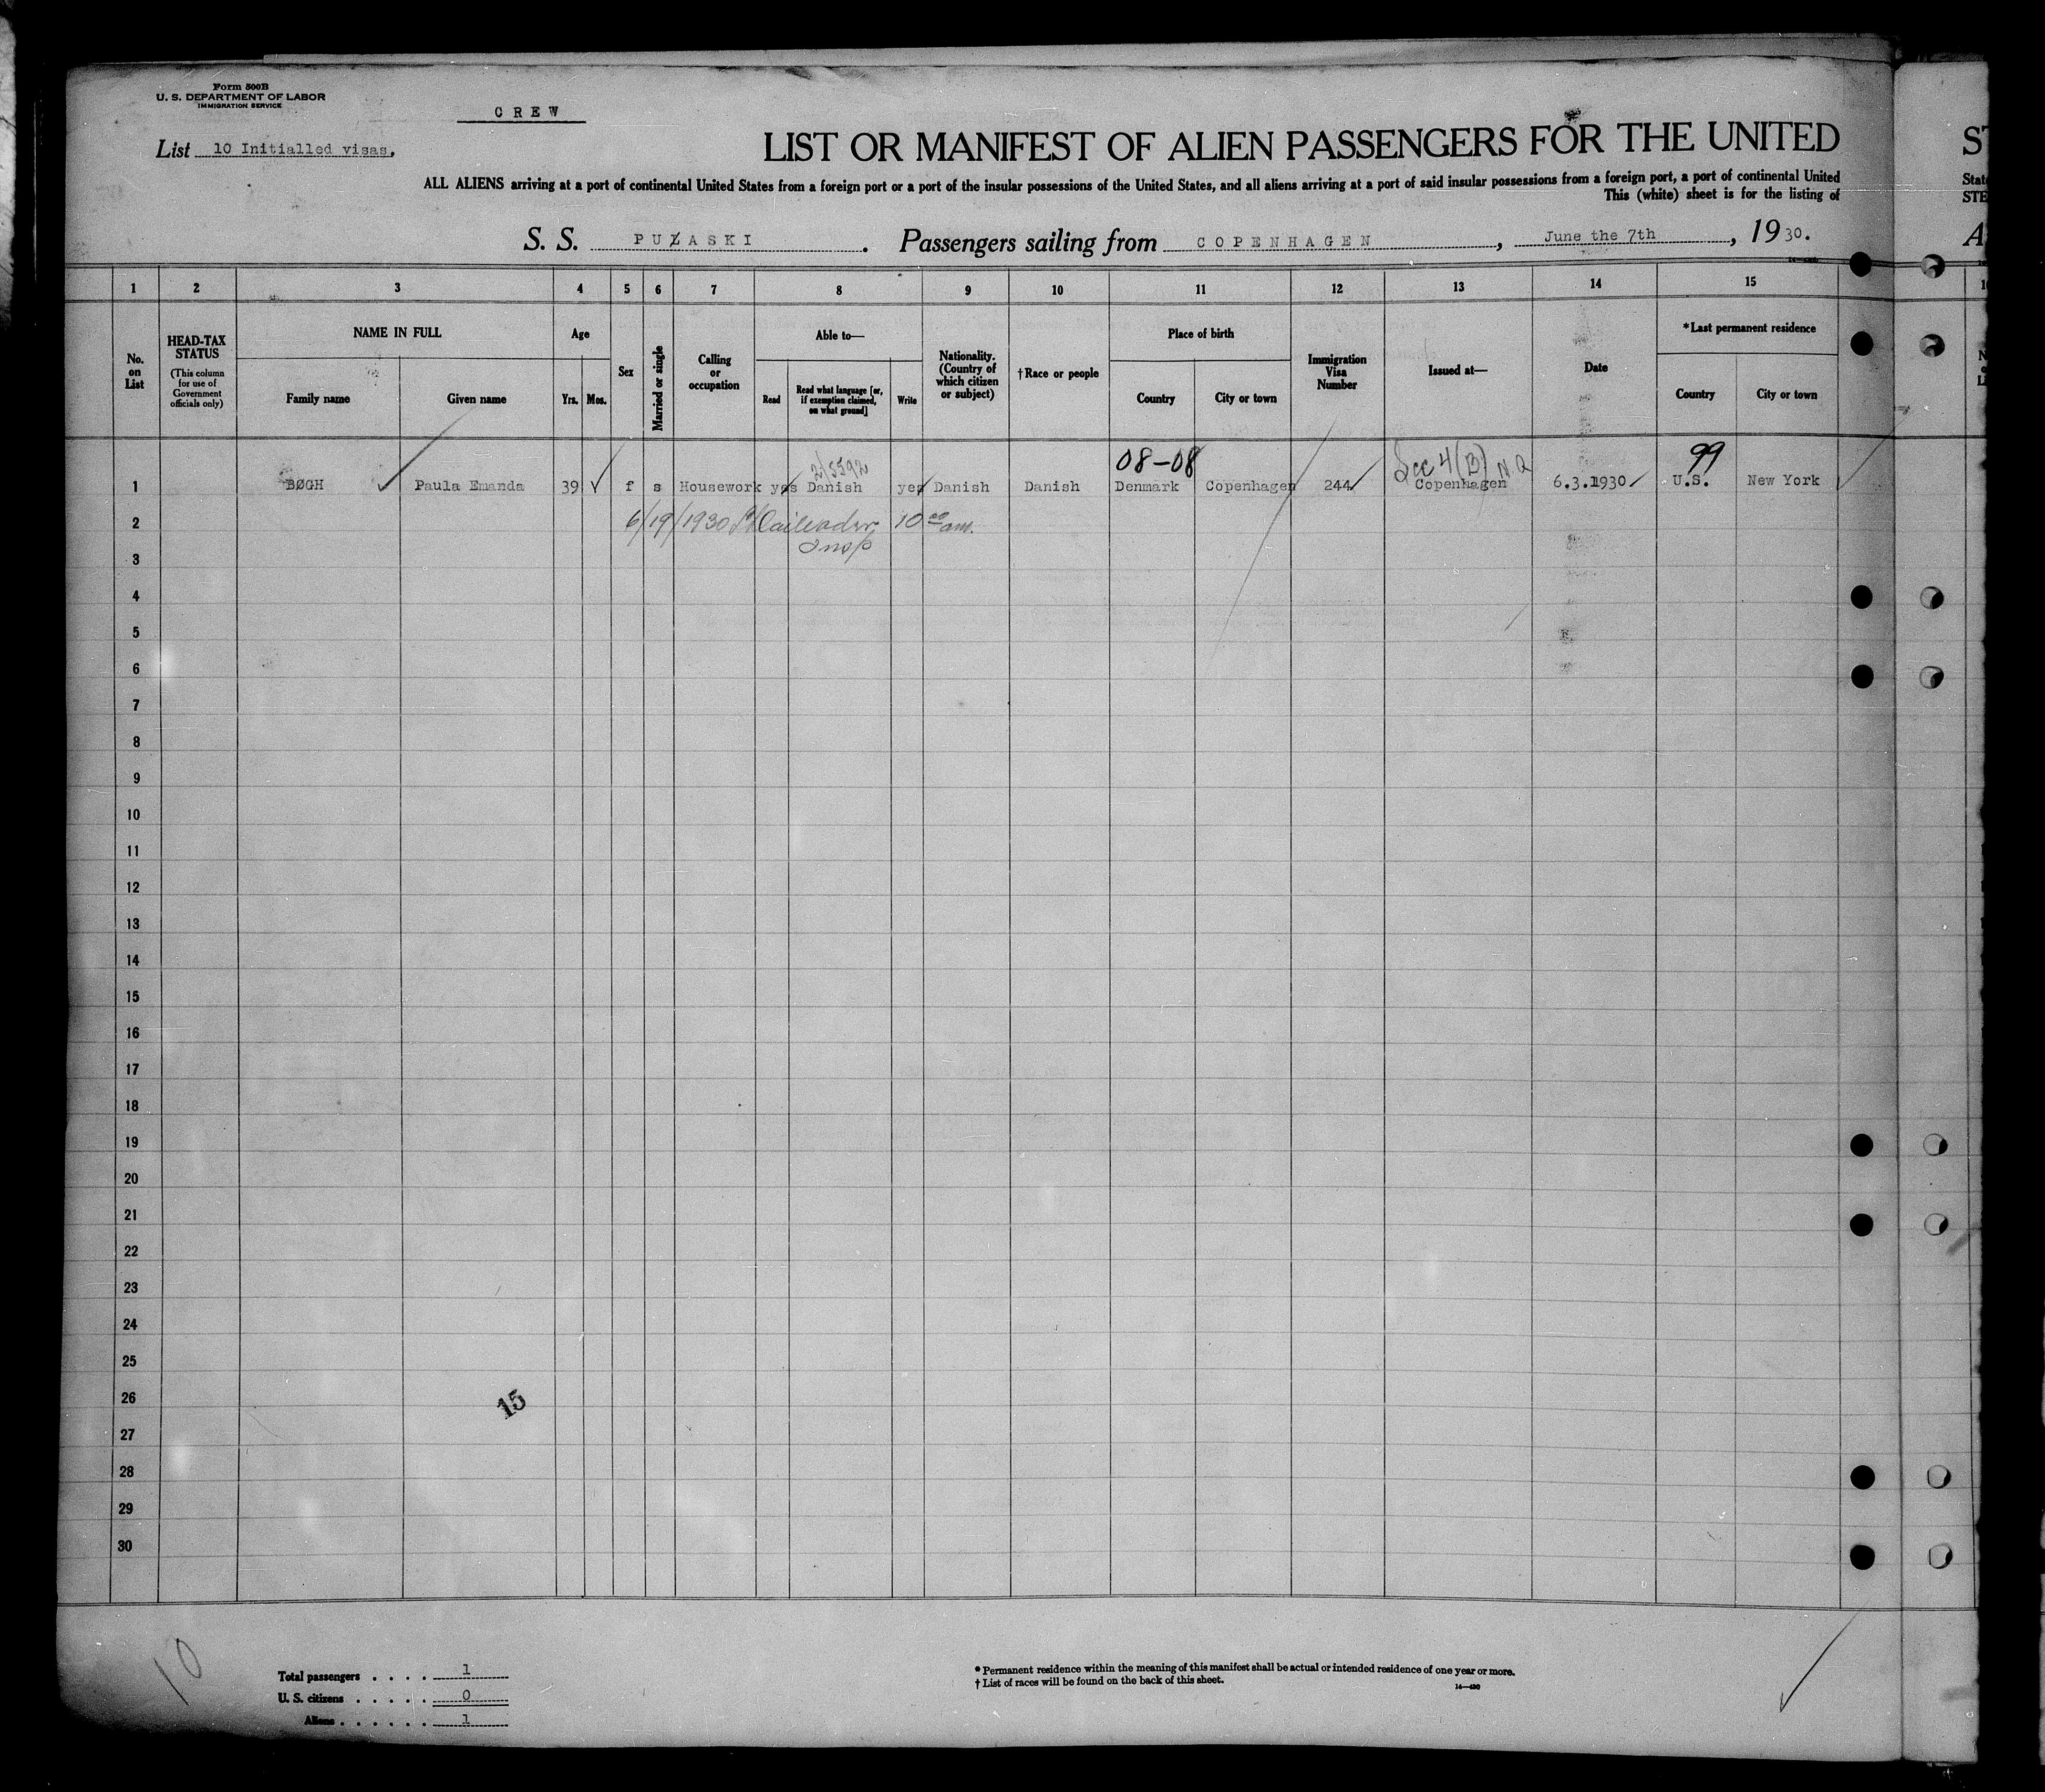 Form 500B
U. S. DEPARTMENT OF LABOR
IMMIGRATION SERVICE
CREW
List 10 Initialled visas.
LIST OR MANIFEST OF ALIEN PASSENGERS FOR THE UNITED
ST
ALL ALIENS arriving at a port of continental United States from a foreign port or a port of the insular possessions of the United States, and all aliens arriving at a port of said insular possessions from a foreign port, a port of continental United
State
This (white) sheet is for the listing of
STE
S. S. PUŁASKI. Passengers sailing from COPENHAGEN, June the 7th, 1930.
A
1 2 3 4 5 6 7 8 9 10 11 12 13 14 15
No. on List
HEAD-TAX STATUS
(This column for use of Government officials only)
NAME IN FULL
Family name
Given name
Age
Yrs.
Mos.
Sex
Married or single
Calling or occupation
Able to—
Read
Read what language [or, if exemption claimed, on what ground]
Write
Nationality. (Country of which citizen or subject)
†Race or people
Place of birth
Country
City or town
Immigration Visa Number
Issued at—
Date
*Last permanent residence
Country
City or town
2/5592 08-08 Sec 4(B) N Q 99
1 BØGH Paula Emanda 39 f s Housework yes Danish yes Danish Danish Denmark Copenhagen 244 Copenhagen 6.3.1930 U.S. New York
2 6/19/1930 10 00 am.
Insp
3
4
5
6
7
8
9
10
11
12
13
14
15
16
17
18
19
20
21
22
23
24
25
26
15
27
28
29
30
10
Total passengers . . . . 1
U. S. citizens . . . . . 0
Aliens . . . . . . 1
* Permanent residence within the meaning of this manifest shall be actual or intended residence of one year or more.
† List of races will be found on the back of this sheet.
14—430